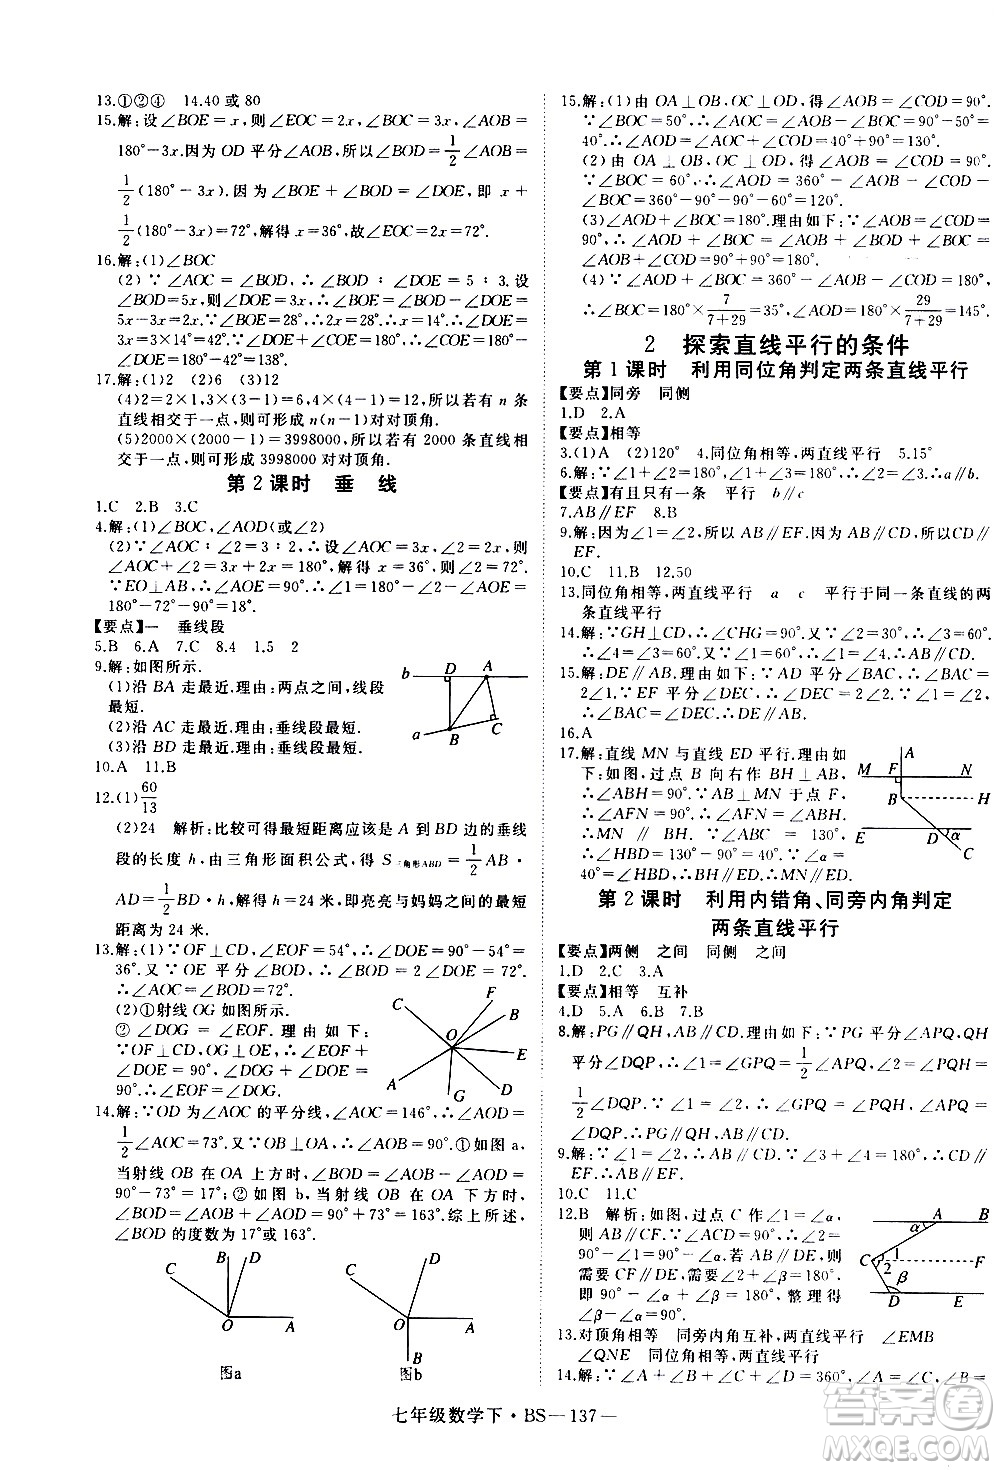 13.①②④　14.40 或 80
15.解:设∠BOE=x,则∠EOC=2x,∠BOC=3x,∠AOB=
180°-3x.因为 OD 平分∠AOB,所以∠BOD=1/2∠AOB=
1/2(180°-3x).因为∠BOE+∠BOD=∠DOE,即 x+
1/2(180°-3x)=72°,解得 x=36°,故∠EOC=2x=72°.
16.解:(1)∠BOC
(2)∵∠AOC=∠BOD,∴∠BOD∶∠DOE=5∶3.设
∠BOD=5x,则∠DOE=3x,∴∠BOE=∠BOD-∠DOE=
5x-3x=2x.∵∠BOE=28°,∴2x=28°,∴x=14°,∴∠DOE=
3x=3×14°=42°.∵∠AOD+∠BOD=180°,∴∠AOE=
180°-42°=138°.
17.解:(1)2　(2)6　(3)12
(4)2=2×1,3×(3-1)=6,4×(4-1)=12,所以若有 n 条
直线相交于一点,则可形成 n(n-1)对对顶角.
(5)2000×(2000-1)=3998000,所以若有 2000 条直线相
交于一点,则可形成 3998000 对对顶角.
第 2 课时　垂　线
1.C　2.B　3.C
4.解:(1)∠BOC,∠AOD(或∠2)
(2)∵∠AOC∶∠2=2∶3,∴设∠AOC=2x,∠2=3x,则
2x+3x=180°,解得 x=36°.∴∠AOC=2x=72°.
∵EO⊥AB,∴∠AOE=90°.∴∠1=180°-∠2-∠AOE=
180°-72°-90°=18°.
【要点】一　垂线段
5.B　6.A　7.C　8.4　1.5　2
9.解:如图所示.
(1)沿 BA 走最近.理由:两点之间,线段
最短.
(2)沿 AC 走最近.理由:垂线段最短.
(3)沿 BD 走最近.理由:垂线段最短.
b D A
a B C
10.A　11.B
12.(1)60/13
(2)24　解析:比较可得最短距离应该是 A 到 BD 边的垂线
段的长度 h,由三角形面积公式,得 S三角形ABD=1/2AB·
AD=1/2BD·h,解得 h=24 米,即亮亮与妈妈之间的最短
距离为 24 米.
13.解:(1)∵OF⊥CD,∠EOF=54°,∴∠DOE=90°-54°=
36°.又∵OE 平分∠BOD,∴∠BOD=2∠DOE=72°.
∴∠AOC=∠BOD=72°.
(2)①射线 OG 如图所示.
②∠DOG=∠EOF.理由如下:
∵OF⊥CD,OG⊥OE,∴∠EOF+
∠DOE=90°,∠DOG+∠DOE=
90°.∴∠EOF=∠DOG.
C F B O E A G D
14.解:∵OD 为∠AOC 的平分线,∠AOC=146°,∴∠AOD=
1/2∠AOC=73°.又∵OB⊥OA,∴∠AOB=90°.①如图 a,
当射线 OB 在 OA 上方时,∠BOD=∠AOB-∠AOD=
90°-73°=17°;②如图 b,当射线 OB 在 OA 下方时,
∠BOD=∠AOB+∠AOD=90°+73°=163°.综上所述,
∠BOD 的度数为 17°或 163°.
C B D O A
图a
C D O A B
图b
15.解:(1)由 OA⊥OB,OC⊥OD,得∠AOB=∠COD=90°.
∵∠BOC=50°,∴∠AOC=∠AOB-∠BOC=90°-50°=
40°.∴∠AOD=∠AOC+∠COD=40°+90°=130°.
(2)由 OA⊥OB,OC⊥OD,得∠AOB=∠COD=90°.
∵∠BOC=60°,∴∠AOD=360°-∠AOB-∠COD-
∠BOC=360°-90°-90°-60°=120°.
(3)∠AOD+∠BOC=180°.理由如下:∵∠AOB=∠COD=
90°,∴∠AOD+∠BOC=360°-∠AOB-∠COD=180°.
(4)∵∠BOC∶∠AOD=7∶29,∠BOC+∠AOD=180°,
∴∠BOC=180°×7/(7+29)=35°,∠AOD=180°×29/(7+29)=145°.
2　探索直线平行的条件
第 1 课时　利用同位角判定两条直线平行
【要点】同旁　同侧
1.D　2.A
【要点】相等
3.(1)A　(2)120°　4.同位角相等,两直线平行　5.15°
6.解:∵∠1+∠2=180°,∠2+∠3=180°,∴∠1=∠3,∴a∥b.
【要点】有且只有一条　平行　b∥c
7.AB∥EF　8.B
9.解:因为∠1=∠2,所以 AB∥EF.因为 AB∥CD,所以CD∥
EF.
10.C　11.B　12.50
13.同位角相等,两直线平行　a　c　平行于同一条直线的两
条直线平行
14.解:∵GH⊥CD,∴∠CHG=90°.∵∠2=30°,∴∠3=60°,
∴∠4=∠3=60°.又∵∠1=60°,∴∠1=∠4,∴AB∥CD.
15.解:DE∥AB.理由如下:∵AD平分∠BAC,∴∠BAC=
2∠1.∵EF 平分∠DEC,∴∠DEC=2∠2.∵∠1=∠2,
∴∠BAC=∠DEC,∴DE∥AB.
16.A
17.解:直线 MN 与直线 ED 平行.理由如
下:如图,过点 B 向右作 BH⊥AB,
∴∠ABH=90°.∵AB⊥MN 于点 F,
∴∠AFN=90°,∴∠AFN=∠ABH,
∴MN∥BH.∵∠ABC=130°,
∴∠HBD=130°-90°=40°.∵∠α=
40°=∠HBD,∴BH∥ED,∴MN∥ED.
A M F N B H E D α C
第 2 课时　利用内错角、同旁内角判定
两条直线平行
【要点】两侧　之间　同侧　之间
1.D　2.C　3.A
【要点】相等　互补
4.D　5.A　6.B　7.B
8.解:PG∥QH,AB∥CD.理由如下:∵PG 平分∠APQ,QH
平分∠DQP,∴∠1=∠GPQ=1/2∠APQ,∠2=∠PQH=
1/2∠DQP.又∵∠1=∠2,∴∠GPQ=∠PQH,∠APQ=
∠DQP,∴PG∥QH,AB∥CD.
9.解:∵∠1=∠2,∴AB∥EF.∵∠3+∠4=180°,∴CD∥
EF.∴AB∥CD.
10.C　11.C
12.B　解析:如图,过点 C 作∠1=∠α,
则 CF∥AB.∵∠ACD=90°,∴∠2=
90°-∠1=90°-∠α.若 AB∥DE,则
需要 CF∥DE,需满足∠2+∠β=180°,
即 90°-∠α+∠β=180°,整理得
∠β-∠α=90°.
A B α C 1 2 F β D E
13.对顶角相等　同旁内角互补,两直线平行　∠EMB
∠QNE　同位角相等,两直线平行
14.解:∵∠A+∠B+∠C+∠D=360°,∠A=∠C,∠B=
七年级数学下·BS—137—
答案圈
MXQE.COM